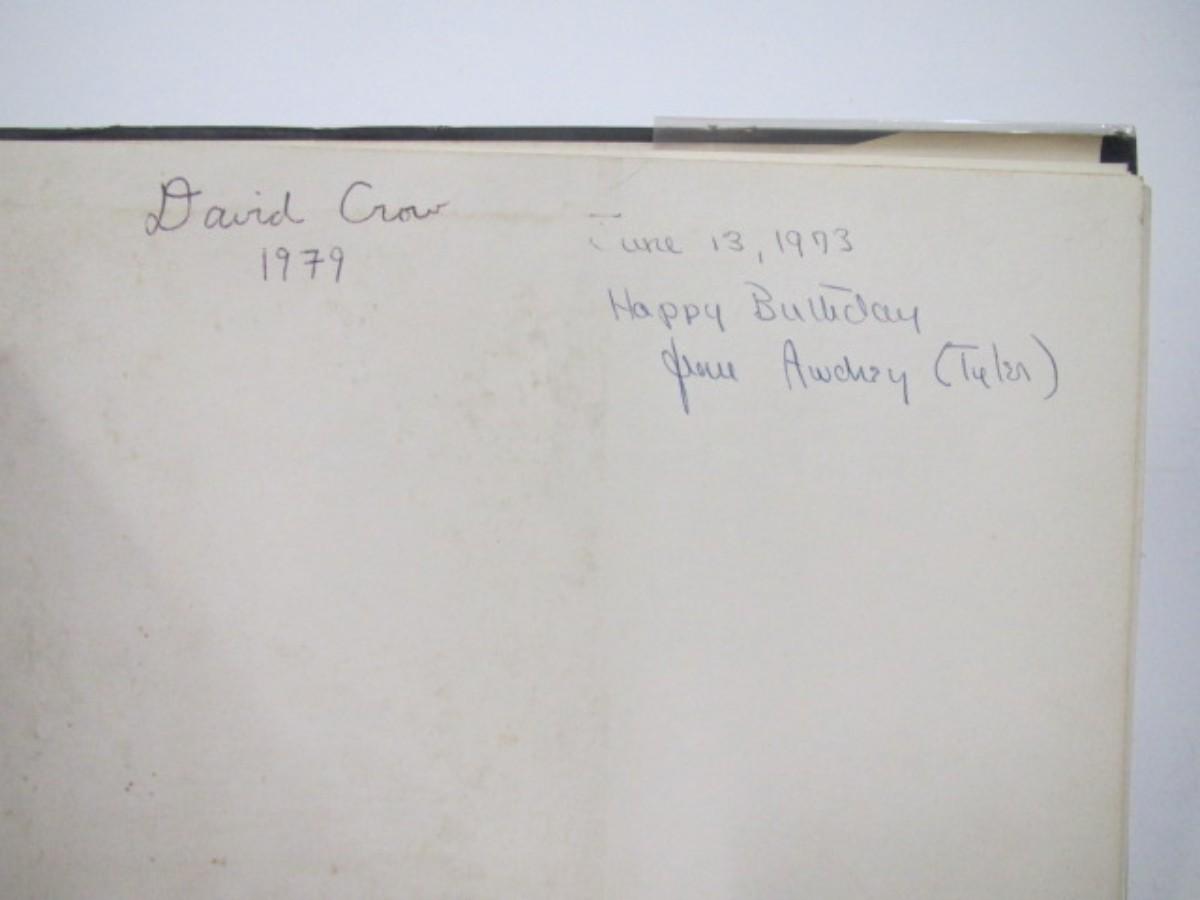 David Crow
1979
June 13, 1973
Happy Birthday
from Audrey (Tyler)